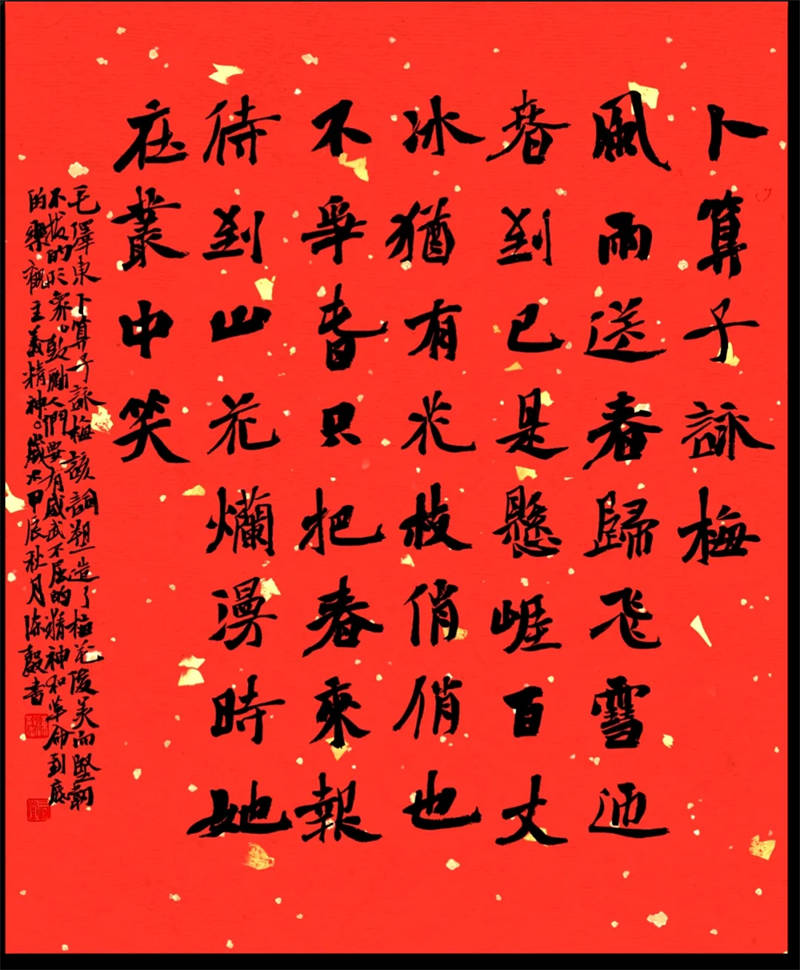 卜算子詠梅
風雨送春歸飛雪迎
春到已是懸崖百丈
冰猶有花枝俏俏也
不爭春只把春來報
待到山花爛漫時她
在叢中笑
毛澤東卜算子詠梅該詞塑造了梅花俊美而堅韌
不拔的形象。鼓勵人們要有威武不屈的精神和革命到底
的樂觀主義精神。歲次甲辰秋月毅書